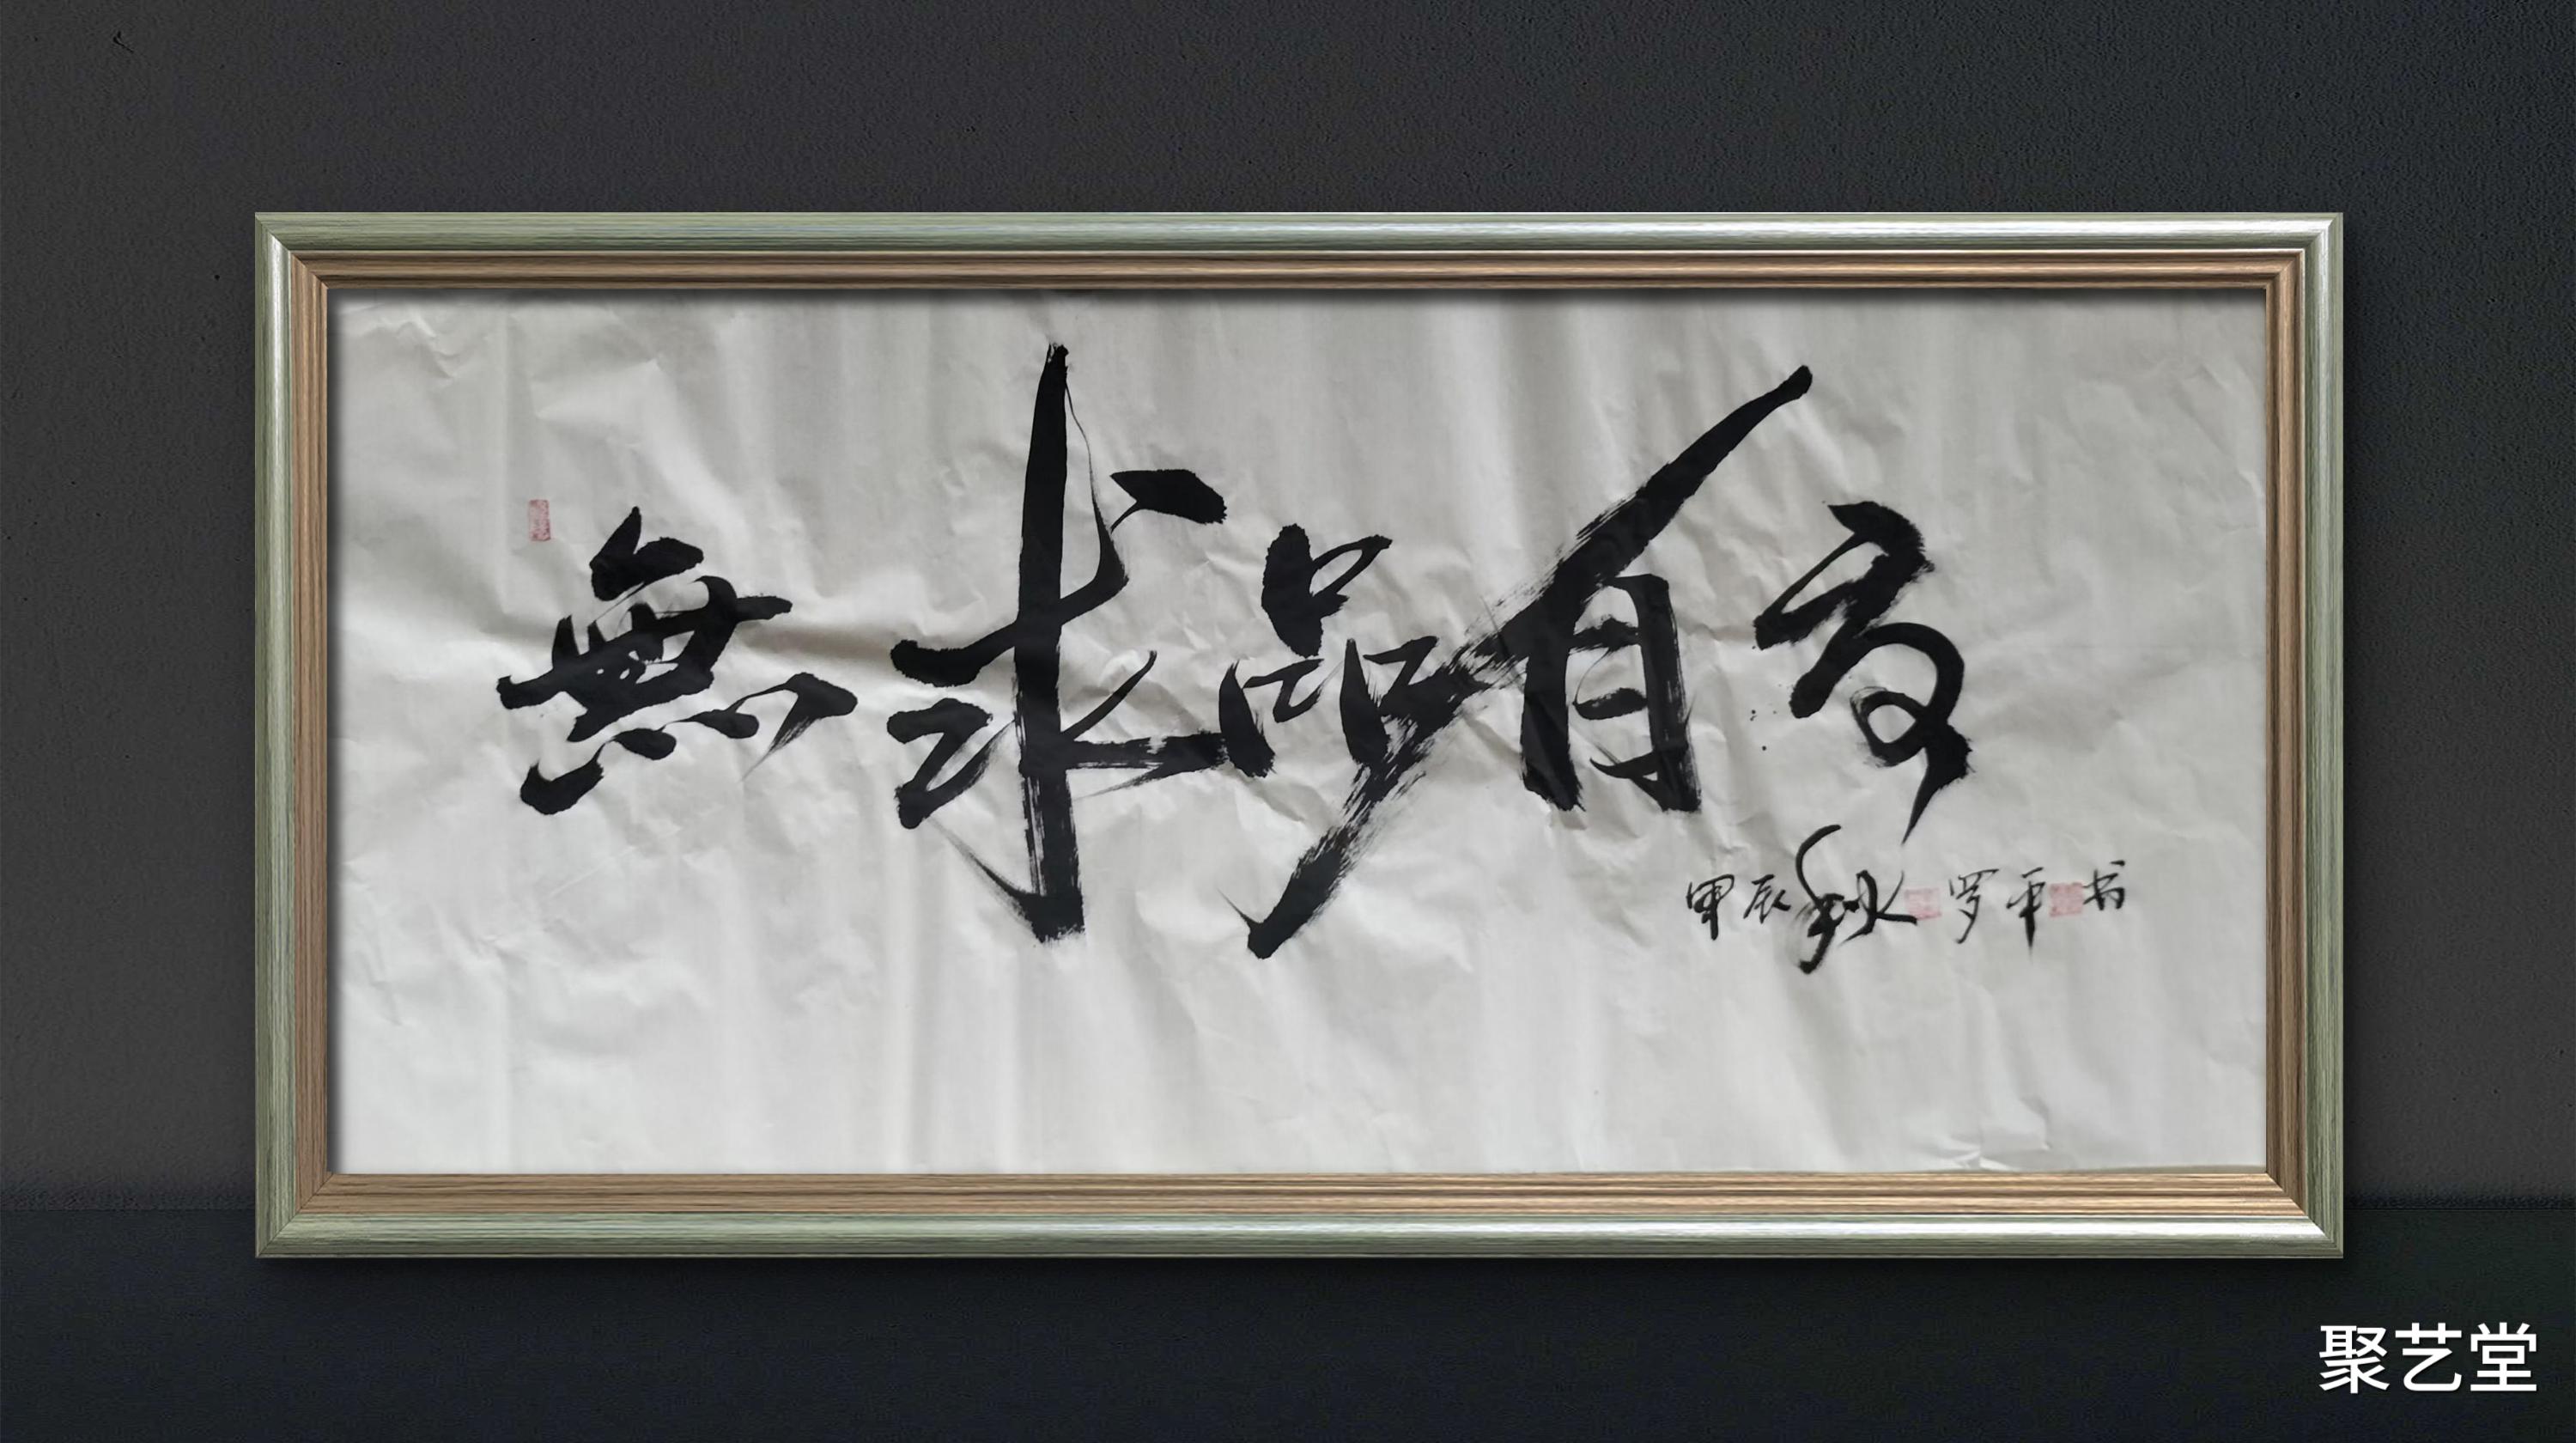 無求品自高
甲辰秋罗平书
聚艺堂